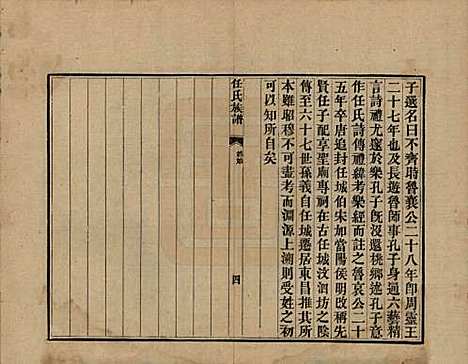 子選名曰不齊時魯襄公二十八年卽周靈王
二十七年也及長遊魯師事孔子身通六藝精
言詩禮尤邃於樂孔子旣沒還桃鄉述孔子意
作任氏詩傳禮緯考樂經而註之魯哀公二十
五年卒唐追封任城伯宋加當陽侯明改稱先
賢任子配享聖廟專祠在古任城汶泗坊之陰
傳至六十七世孫義自任城遷居東昌推其所
本雖昭穆不可盡考而淵源上溯則受姓之初
可以知所自矣
任氏族譜
四